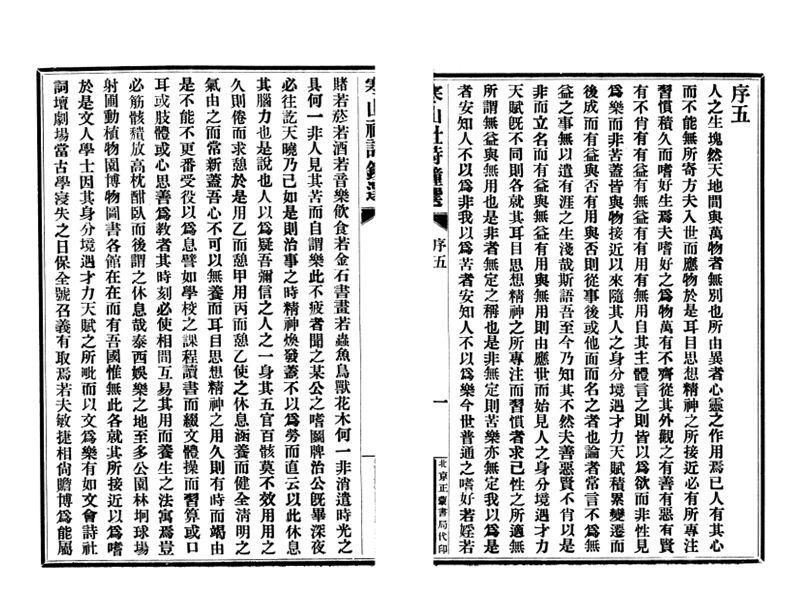 序五
人之生塊然天地間與萬物者無別也所由異者心靈之作用焉已人有其心
而不能無所寄方夫入世而應物於是耳目思想精神之所接近必有所專注
習慣積久而嗜好生焉夫嗜好之爲物萬有不齊從其外觀之有善有惡有賢
有不肖有有益有無益有有用有無用自其主體言之則皆以爲欲而非性見
爲樂而非苦蓋皆與物接近以來隨其人之身分境遇才力天賦積累變遷而
後成而有益與否有用與否則從事後或他面而名之者也論者常言不爲無
益之事無以遣有涯之生淺哉斯語吾至今乃知其不然夫善惡賢不肖以是
非而立名而有益與無益有用與無用則由應世而始見人之身分境遇才力
天賦旣不同則各就其耳目思想精神之所專注而習慣者求己性之所適無
所謂無益與無用也是非者無定之稱也是非無定則苦樂亦無定我以爲是
者安知人不以爲非我以爲苦者安知人不以爲樂今世普通之嗜好若婬若
寒山社詩鐘選
序五
一
北京正蒙書局代印
賭若菸若酒若音樂飲食若金石書畫若蟲魚鳥獸花木何一非消遣時光之
具何一非人見其苦而自謂樂此不疲者聞之某公之嗜圖牌治公旣畢深夜
必往訖天曉乃已如是則治事之時精神煥發蓋不以爲勞而直云以此休息
其腦力也是說也人以爲疑吾彌信之人之一身其五官百骸莫不效用用之
久則倦而求憩於是用乙而憩甲用丙而憩乙使之休息涵養而健全淸明之
氣由之而常新蓋吾人心不可以無養而耳目思想精神之用久則有時而竭由
是不能不更番受役以爲息譬如學校之課程讀書而綴文體操而習算或口
耳或肢體或心思善爲教者其時刻必使相間互易其用而養生之法寓焉豈
必筋骸隳放高枕酣臥而後謂之休息哉泰西娛樂之地至多公園林坰球場
射圃動植物園博物圖書各館在在而有吾國惟無此各就其所接近以爲嗜
於是文人學士因其身分境遇才力天賦之所呲而以文爲樂有如文會詩社
詞壇劇場當古學寖失之日保全號召義有取焉若夫敏捷相尙贍博爲能屬
寒山社詩鐘選